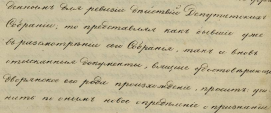 деннымъ для ревизіи дѣйствій Депутатскаго
Собранія, то представляя какъ бывшіе уже
въ разсмотрѣніи сего Собранія, такъ и вновь
отысканные документы, вящше удостовѣряющіе
дворянское его рода происхожденіе, проситъ учи-
нить по онымъ новое опредѣленіе о признаніи